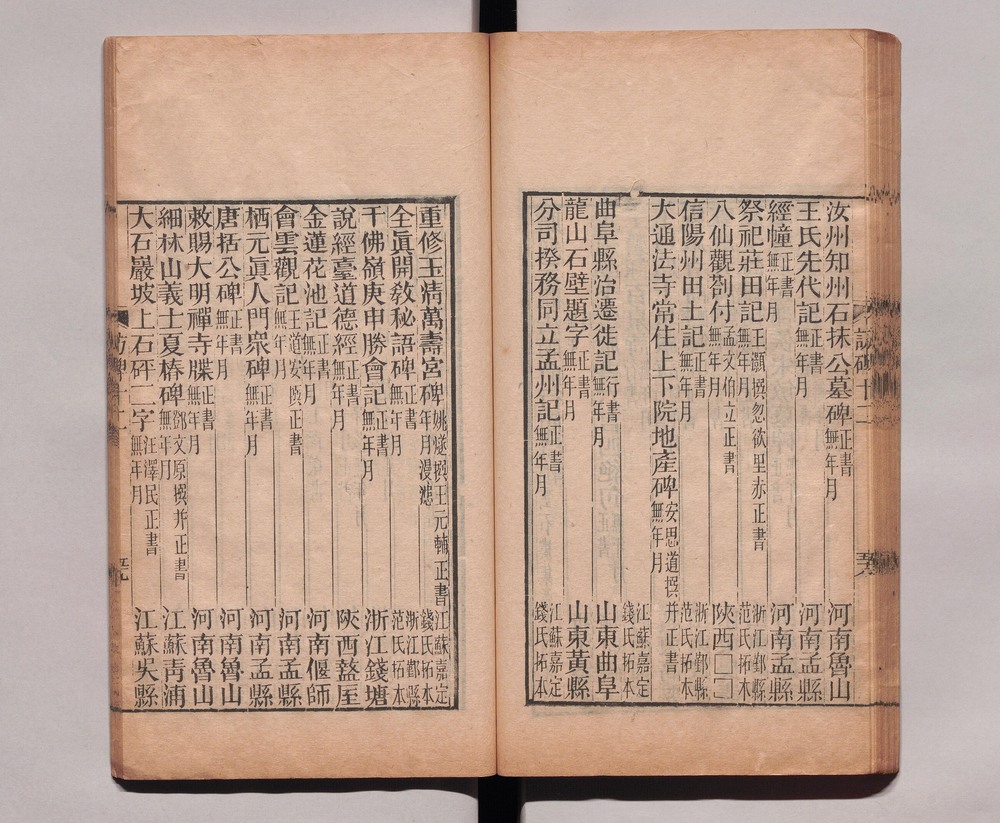 汝州知州石抹公墓碑 正書 無年月 河南魯山
王氏先代記 正書 無年月 河南孟縣
經幢 正書 無年月 河南孟縣
祭祀莊田記 王顥撰忽欲里赤正書 無年月 浙江鄞縣范氏拓本
八仙觀劄付 孟文伯立正書 無年月 陝西□□
信陽州田土記 正書 無年月 浙江鄞縣范氏拓本
大通法寺常住上下院地產碑 安思道撰并正書 無年月 江蘇嘉定錢氏拓本
曲阜縣治遷徙記 行書 無年月 山東曲阜
龍山石壁題字 正書 無年月 山東黃縣
分司揆務同立孟州記 正書 無年月 江蘇嘉定錢氏拓本
重修玉清萬壽宮碑 姚燧撰王元輔正書 年月漫漶 江蘇嘉定錢氏拓本
全眞開教秘語碑 正書 無年月 浙江鄞縣范氏拓本
千佛嶺庚申勝會記 正書 無年月 浙江錢塘
說經臺道德經 正書 無年月 陝西盩厔
金蓮花池記 正書 無年月 河南偃師
會雲觀記 王道安 正書 無年月 河南孟縣
栖元眞人門衆碑 正書 無年月 河南孟縣
唐括公碑 正書 無年月 河南魯山
敕賜大明禪寺牒 正書 無年月 河南魯山
細林山義士夏椿碑 鄧文原撰并正書 無年月 江蘇青浦
大石巖坡上石砰二字 汪澤民正書 無年月 江蘇吳縣